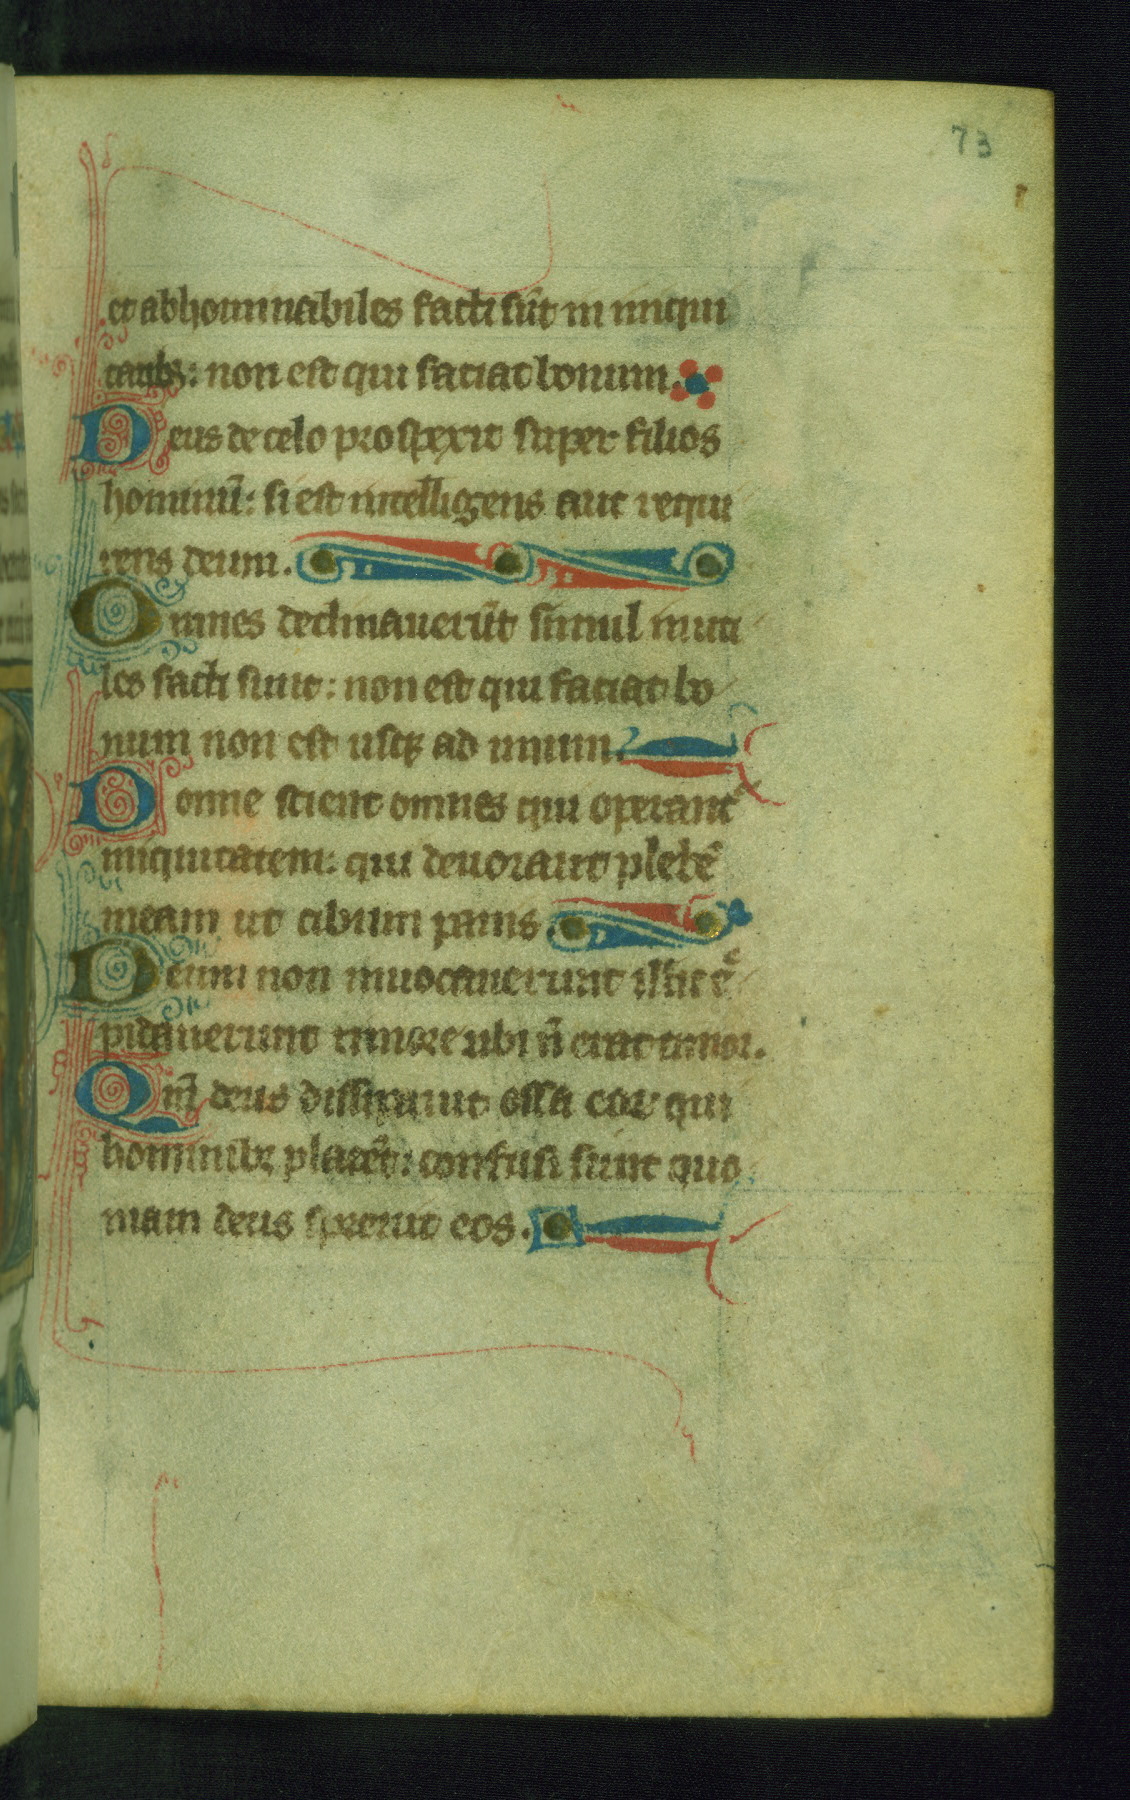 73
et abhominabiles facti sūt in iniqui
tatibꝫ: non est qui faciat bonum.
Deus de celo prospexit super filios
hominū: si est intelligens aut requi
rens deum.
Omnes declinauerūt simul inuti
les facti sunt: non est qui faciat bo
num non est usqꝫ ad unum.
Nonne scient omnes qui operant᷑
iniquitatem: qui deuorant plebē
meam ut cibum panis.
Deum non inuocauerunt illic t᷑
pidauerunt timore ubi n̄ erat timor.
Qm̄ deus dissipauit ossa eoꝝ qui
hominibꝫ placēt: confusi sunt quo
niam deus spreuit eos.